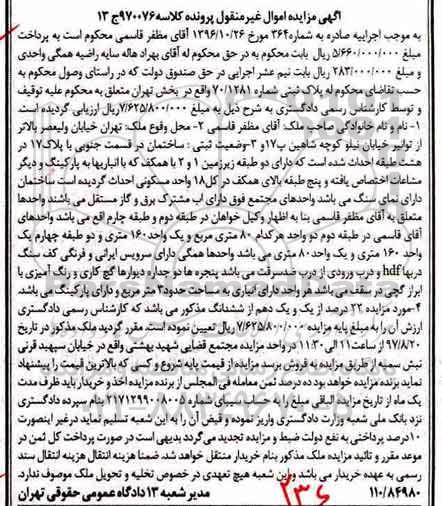 آگهی مزایده اموال غیرمنقول پرونده کلاسه۹۷۰۰۷۶ج ۱۳
به موجب اجراییه صادره به شماره۳۶۴ مورخ ۱۳۹۶/۱۰/۲۶ آقای مظفر قاسمی محکوم است به پرداخت
مبلغ ۵/۶۶۰/۰۰۰/۰۰۰ ریال بابت محکوم به در حق محکوم له آقای بهراد هاله سایه راضیه همگی واحدی
و مبلغ ۲۸۳/۰۰۰/۰۰۰ ریال بابت نیم عشر اجرایی در حق صندوق دولت که در راستای وصول محکوم به
حسب تقاضای محکوم له پلاک ثبتی شماره ۷۰/۱۲۸۱ واقع در بخش تهران متعلق به محکوم علیه توقیف
و توسط کارشناس رسمی دادگستری به شرح ذیل به مبلغ ۷/۶۲۵/۸۰۰/۰۰۰ریال ارزیابی گردیده است.
۱- نام و نام خانوادگی صاحب ملک: آقای مظفر قاسمی ۲- محل وقوع ملک: تهران خیابان ولیعصر بالاتر
از توانیر خیابان نیلو کوچه شاهین پ۱۷ و ۳-وضعیت ثبتی : ساختمان در قسمت جنوبی با پلاک۱۷ در
هشت طبقه احداث شده است که دارای دو طبقه زیرزمین ۱ و ۲ با همکف که با انباریها به پارکینگ و دیگر
مشاعات اختصاص یافته و پنج طبقه بالای همکف در کل۱۸ واحد مسکونی احداث گردیده است ساختمان
دارای نمای سنگ می باشد واحدهای مجتمع فوق دارای آب مشترک برق و گاز مستقل می باشند واحدها
متعلق به آقای مظفر قاسمی بنا به اظهار وکیل خواهان در طبقه دوم و طبقه چارم اقع می باشد واحدهای
آقای قاسمی در طبقه دوم دو واحد هرکدام ۸۰ متری مربع و یک واحد۱۶۰ متری و دو طبقه چهارم یک
واحد ۱۶۰ متری و یک واحد۸۰ متری می باشد واحدها همگی دارای سرویس ایرانی و فرنگی کف سنگ
دربها hdf و درب ورودی از درب ضدسرقت می باشد پنجره ها دو جداره دیوارها گچ کاری و رنگ آمیزی با
ابزار گچی در سقف می باشد هر واحد دارای انباری به مساحت حدود۳ متر مربع و دارای پارکینگ می باشد.
۴-مورد مزایده ۲۲ درصد از یک و یک دهم از ششدانگ مذکور می باشد که کارشناس رسمی دادگستری
ارزش آن را به مبلغ پایه مزایده ۷/۶۲۵/۸۰۰/۰۰۰ ریال تعیین نموده است. مقرر گردید ملک مذکور در تاریخ
۹۷/۸/۲۰ از ساعت۱۱ الی ۱۱:۳۰ در واحد مزایده مجتمع قضایی شهید بهشتی واقع در خیابان سپهبد قرنی
نبش سمیه از طریق مزایده به فروش برسد. مزایده از قیمت پایه شروع و کسی که بالاترین قیمت را پیشنهاد
نماید برنده مزایده خواهد بود ده درصد ثمن معامله فی المجلس از برنده مزایده اخذ و خریدار باید ظرف مدت
یک ماه از تاریخ مزایده الباقی مبلغ را به حساب سپای شماره ۲۱۷۱۲۹۹۰۰۸۰۰۵ بنام سپرده دادگستری
نزد بانک ملی شعبه وزارت دادگستری واریز نموده و قبض آن را به این شعبه تسلیم نماید درغیر اینصورت
۱۰درصد پرداختی به نفع دولت ضبط و مزایده تجدید می گردد بدیهی است در صورت پرداخت کل ثمن در
موعد مقرر و تائید مزایده ملک مذکور بنام خریدار منتقل خواهد شد. ضمنا هزینه انتقال هزینه انتقال سند
رسمی به عهده خریدار می باشد واین شعبه هیچ تعهدی در خصوص تخلیه و تحویل ملک موصوف ندارد.
۱۱۰/۸۴۹۸۰ مدیر شعبه ۱۳ دادگاه عمومی حقوقی تهران